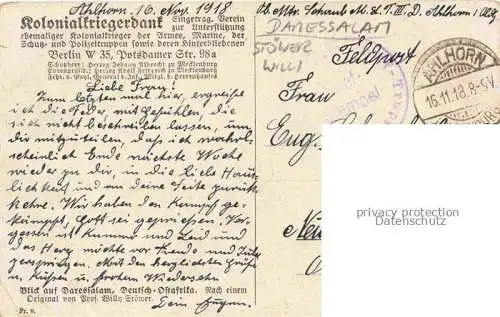 Ahlhorn, 16. Nov. 1918
Kolonialkriegerdank Eingetrag. Verein
zur Unterstützung
ehemaliger Kolonialkrieger der Armee, Marine, der
Schutz- und Polizeitruppen sowie deren Hinterbliebenen
Berlin W 35, Potsdamer Str. 98a
Schutzherr: Herzog Johann Albrecht zu Mecklenburg
Ehrenpräsid.: Herzog Adolf Friedrich zu Mecklenburg
Liebe Frau!
Zum letzten mal hier, ergreife
ich die Feder, mit Gefühlen, die
ich nicht beschreiben lassen, um
dir mitzuteilen, daß ich wahr-
scheinlich Ende nächste Woche
wieder zu dir, in die liebe Häus-
lichkeit und an deine Seite zurück
kehre. Wir haben den Kampf ge-
kämpft, Gott sei gepriesen. Ver-
gessen ist Kummer und Leid und
das Herz möchte vor Freude und
zerspringen. Mit den herzlichsten Grüßen
u. Küssen u. frohem Wiedersehn
Dein Eugen.
Blick auf Daressalam, Deutsch-Ostafrika. Nach einem
Original von Prof. Willy Stöwer.
Pr. 8.
DARESSALAM
STÖWER
WILLI
Feldpost
Frau
Eug.
AHLHORN
16.11.18.8-9V.
privacy protection
Datenschutz